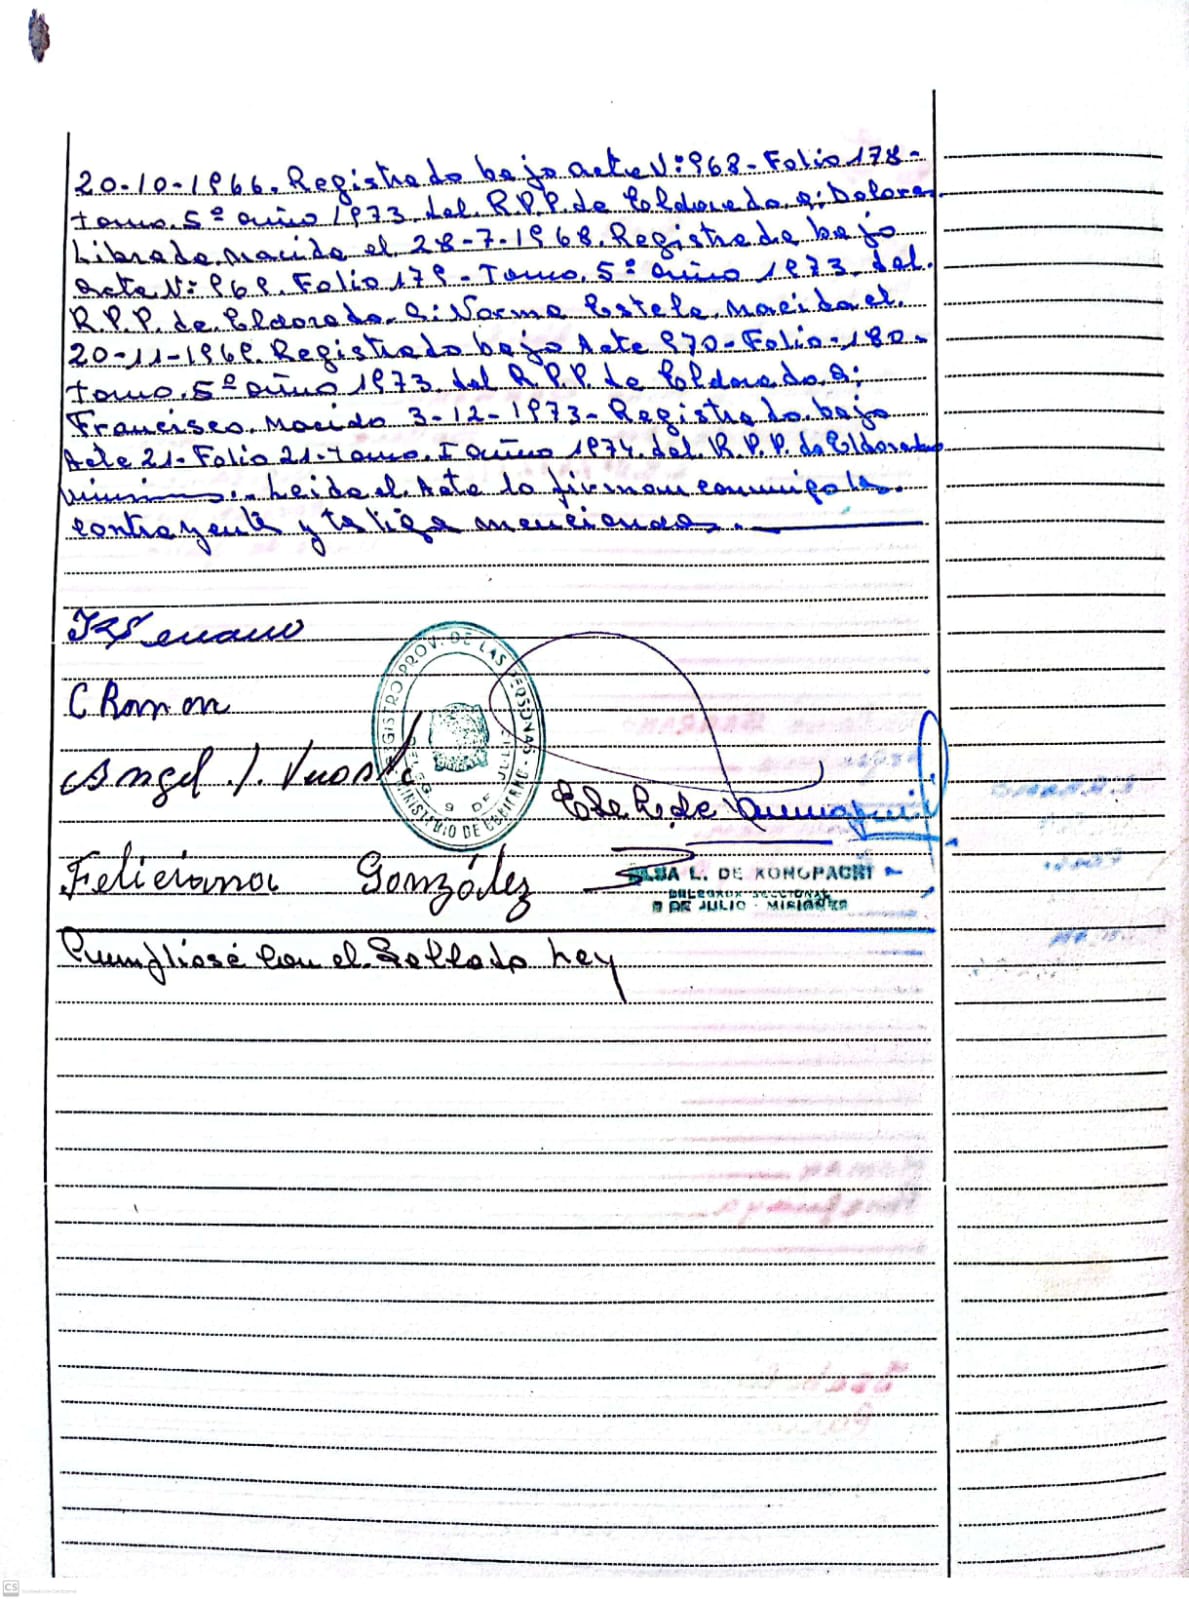 20-10-1966. Registrado bajo acta Nº: 968 - Folio 178 -
Tomo. 5º año 1973. del R.P.P. de Eldorado. a: Dolores
Librada. Nacida el 28-7-1968. Registrada bajo
acta Nº: 969. Folio 179 - Tomo. 5º año 1973. del.
R.P.P. de. Eldorado. a: Norma Estela. Nacida el.
20-11-1969. Registrado bajo Acta 970 - Folio - 180 -
Tomo. 5º año 1973. del R.P.P. de Eldorado. a:
Francisco. Nacido 3-12-1973 - Registrado. bajo
Acta 21 - Folio 21 - Tomo. I año 1974. del. R.P.P. de Eldorado
Misiones. Leida el Acta la firman conmigo los.
contrayentes y testigos mencionados.
C Ramon
Angel J.
REGISTRO PROV. DE LAS PERSONAS
MINISTERIO DE GOBIERNO
DELEG. 9 DE JULIO
Feliciano González
ELSA L. DE KONOPACKI
DELEGADA SECCIONAL
9 DE JULIO - MISIONES
Cumpliose con el Sellado Ley
CS